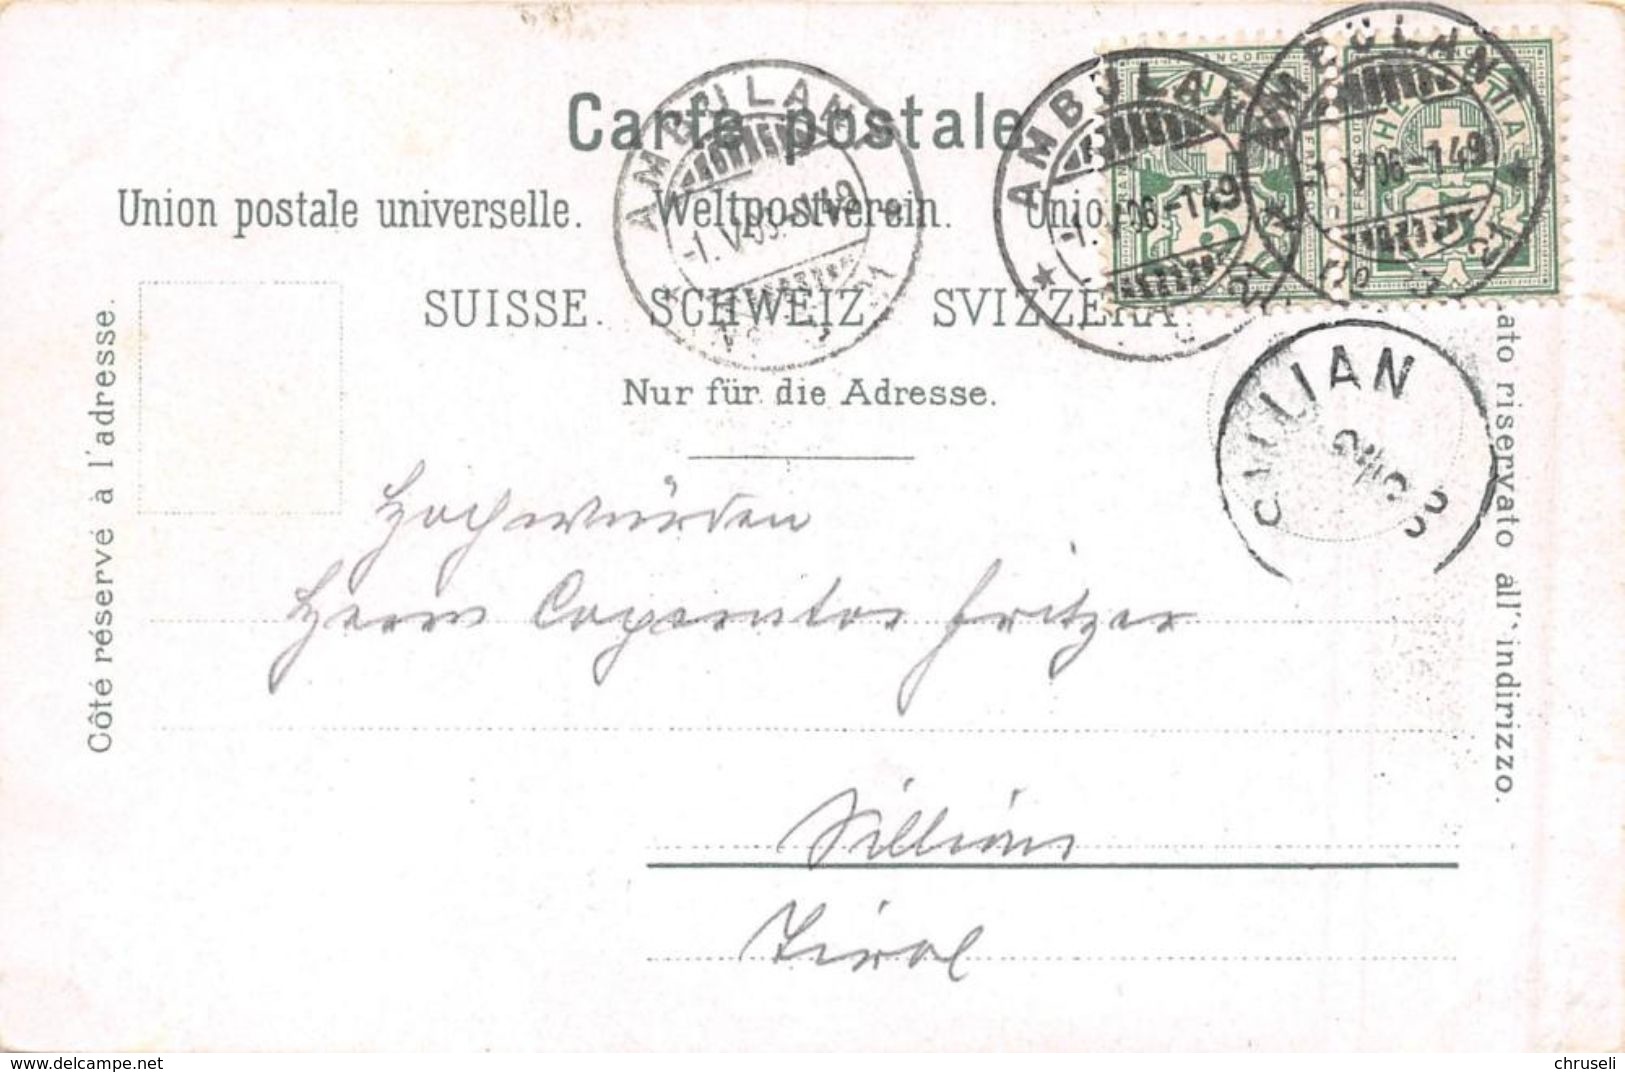 Carte postale
Union postale universelle. Weltpostverein. Unio
SUISSE. SCHWEIZ SVIZZERA
Nur für die Adresse.
Côté réservé à l'adresse.
ato riservato all' indirizzo.
AMBULANT
-1. V 06-149
AMBULANT
-1. V 06-149
AMBULANT
-1. V 06-149
5
HELVETIA
SILLIAN
Hochwürden
Herrn Cooperator Fritzer
Sillian
Tirol
www.delcampe.net
chruseli